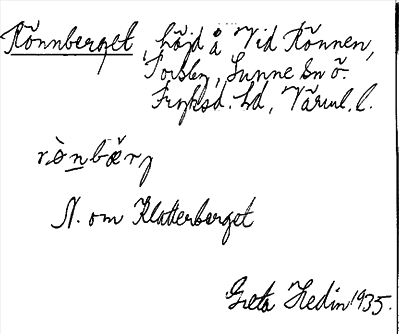 Rönnberget, höjd å Vid Rönnen,
Torsby, Sunne sn Ö.
Fryksd. hd, Värml. l.
rònbær̆j
N. om Klatterberget
Greta Hedin 1935.